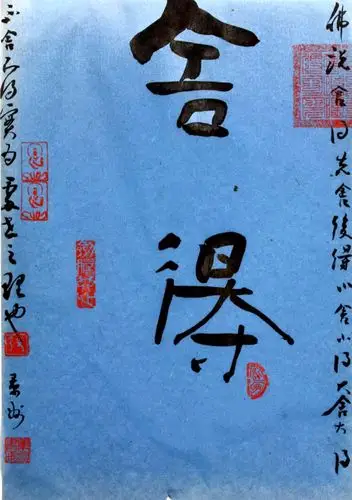 佛说舍得先舍後得小舍小得大舍大得
舍得
不舍不得實为處世之理也